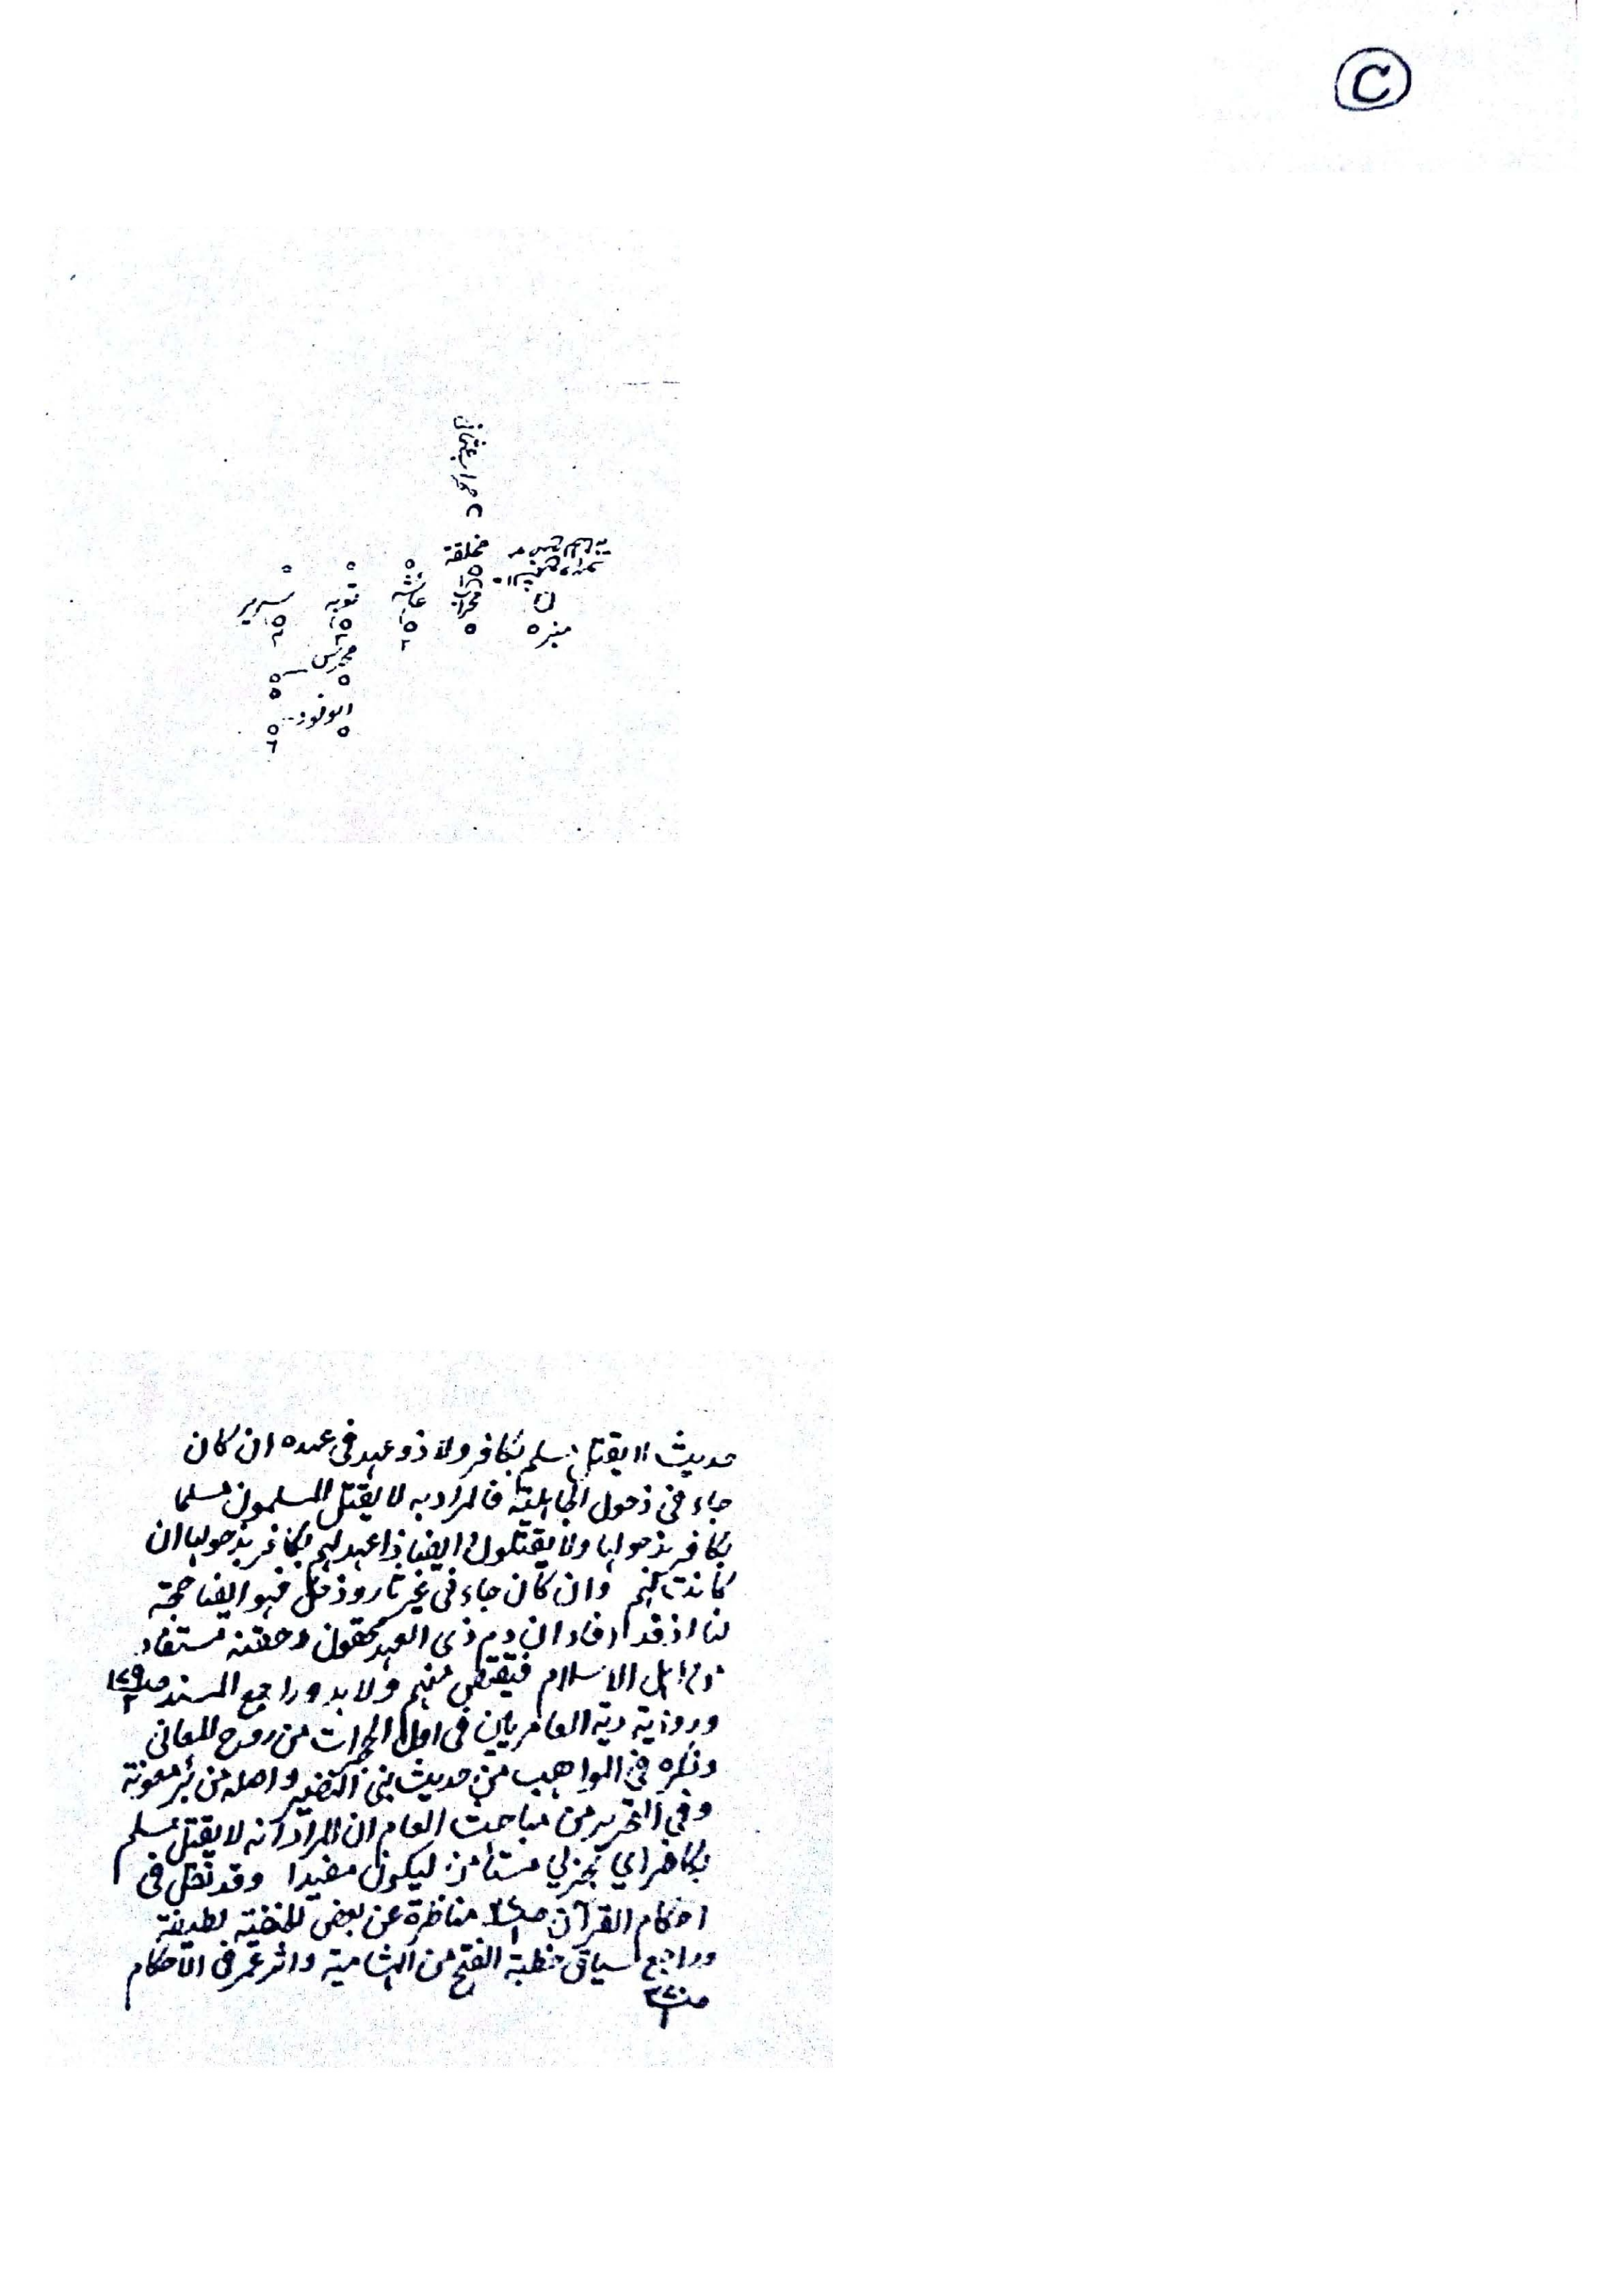 C
محراب عثمانی
مخلقة
منبر ه
محراب
عائشہ
توبہ
سریر
محرس
الوفود
حديث لا يقتل مسلم بكافر ولا ذو عهد في عهده ان كان
جاء في ذحول الجاهلية فالمراد به لا يقتل المسلمون مسلما
بكافر بذحولها ولا يقتلون ايضا ذا عهد لهم بكافر بذحولها ان
كانت لهم وان كان جاء في غير ثار وذحل فهو ايضا حجة
لنا اذ قد افاد ان دم ذى العهد محقون وحقنه مستفاد
من اهل الاسلام فيقتص منهم ولا بد وراجع المسند
ورواية دية العامريين في اول الحجرات من روح المعانى
وذكره في المواهب من حديث بنى النضير واصله من بئر معونة
وفي التحرير من مباحث العام ان المراد انه لا يقتل مسلم
بكافر اي بحربي مستامن ليكون مفيدا وقد نقل في
احكام القرآن مناظرة عن بعض الحنفية لطيفة
وراجع سياق خطبة الفتح من الشامية واثر عمر في الاحكام